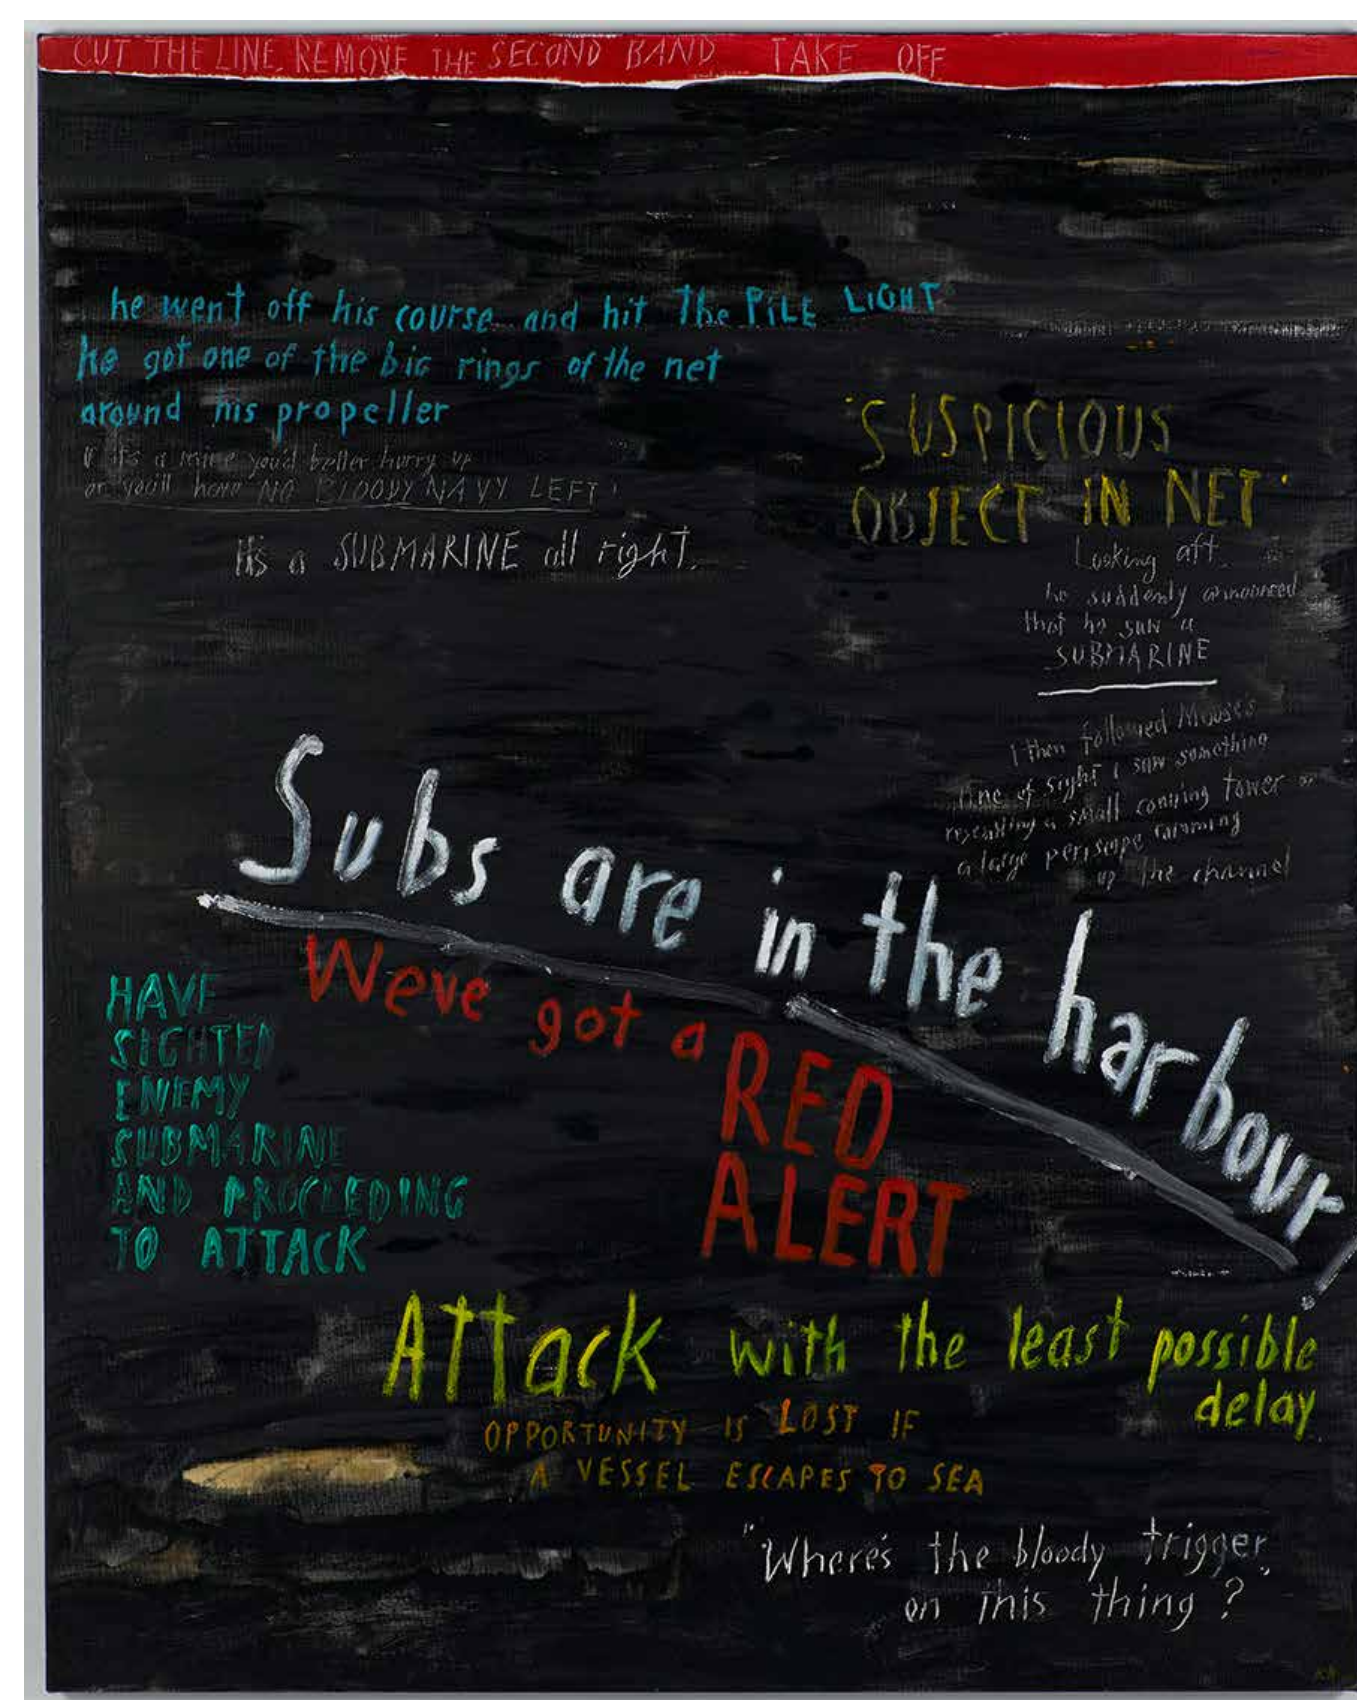 CUT THE LINE REMOVE THE SECOND BAND TAKE OFF
he went off his course and hit The PiLE LIGHT
he got one of the big rings of the net
around his propeller
if it's a mine you'd better hurry up
or you'll have NO BLOODY NAVY LEFT'
It's a SUBMARINE all right.
'SUSPICIOUS
OBJECT IN NET'
Looking aft
he suddenly announced
that he saw a
SUBMARINE
I then followed
line of sight I saw something
a small conning tower or
a large periscope
up the channel
Subs are in the harbour!
We've got a
RED
ALERT
HAVE
SIGHTED
ENEMY
SUBMARINE
AND PROCEEDING
TO ATTACK
ATTack with the least possible
delay
OPPORTUNITY IS LOST IF
A VESSEL ESCAPES TO SEA
"Where's the bloody trigger
on this thing?